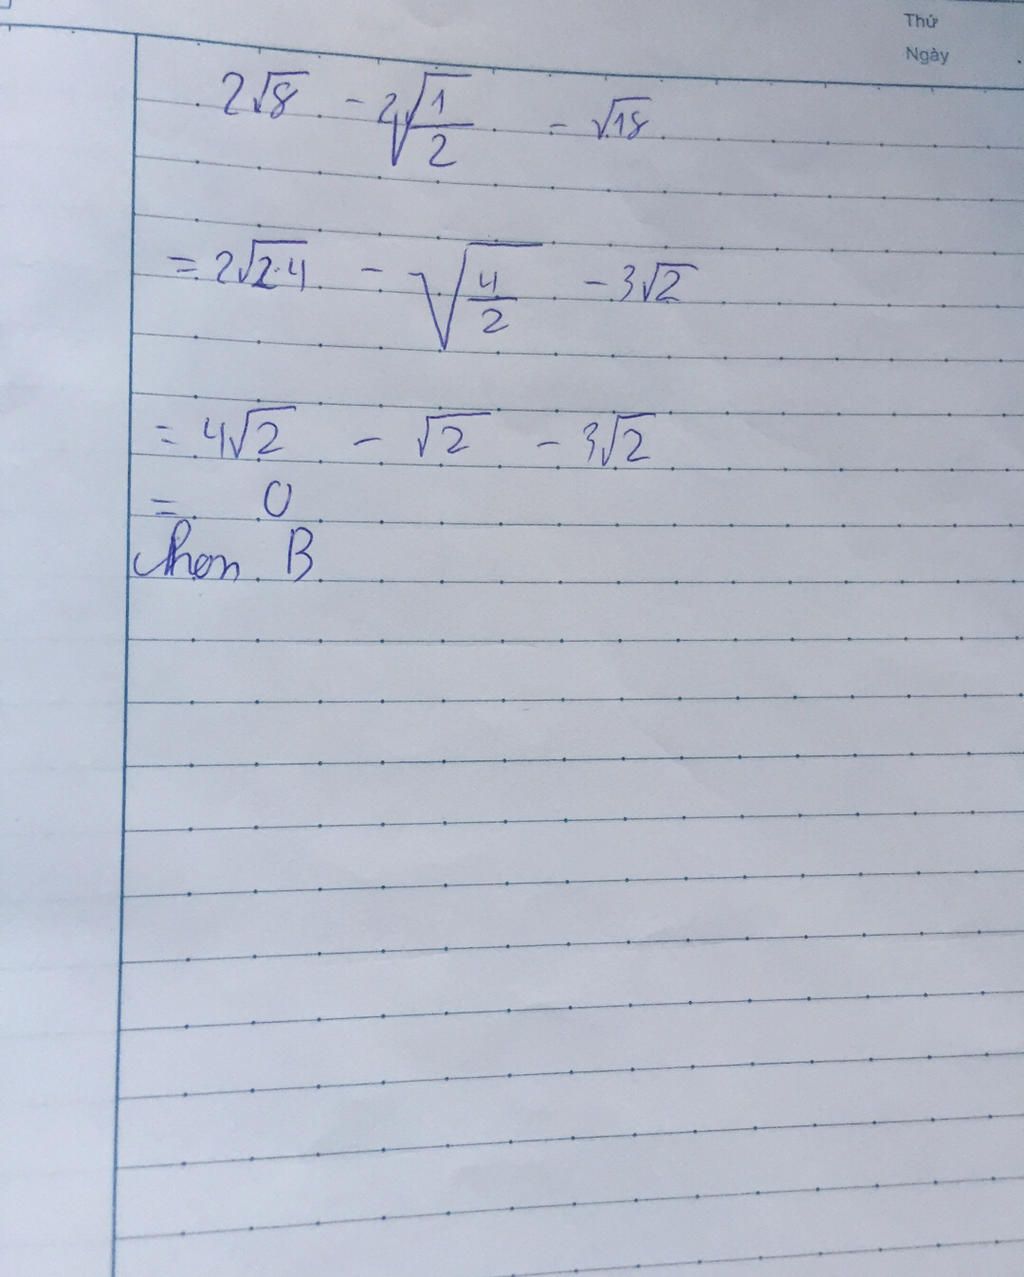 Thứ
Ngày
2√8 - 2√(1/2) - √18
= 2√(2·4) - √(4/2) - 3√2
= 4√2 - √2 - 3√2
= 0
chọn B